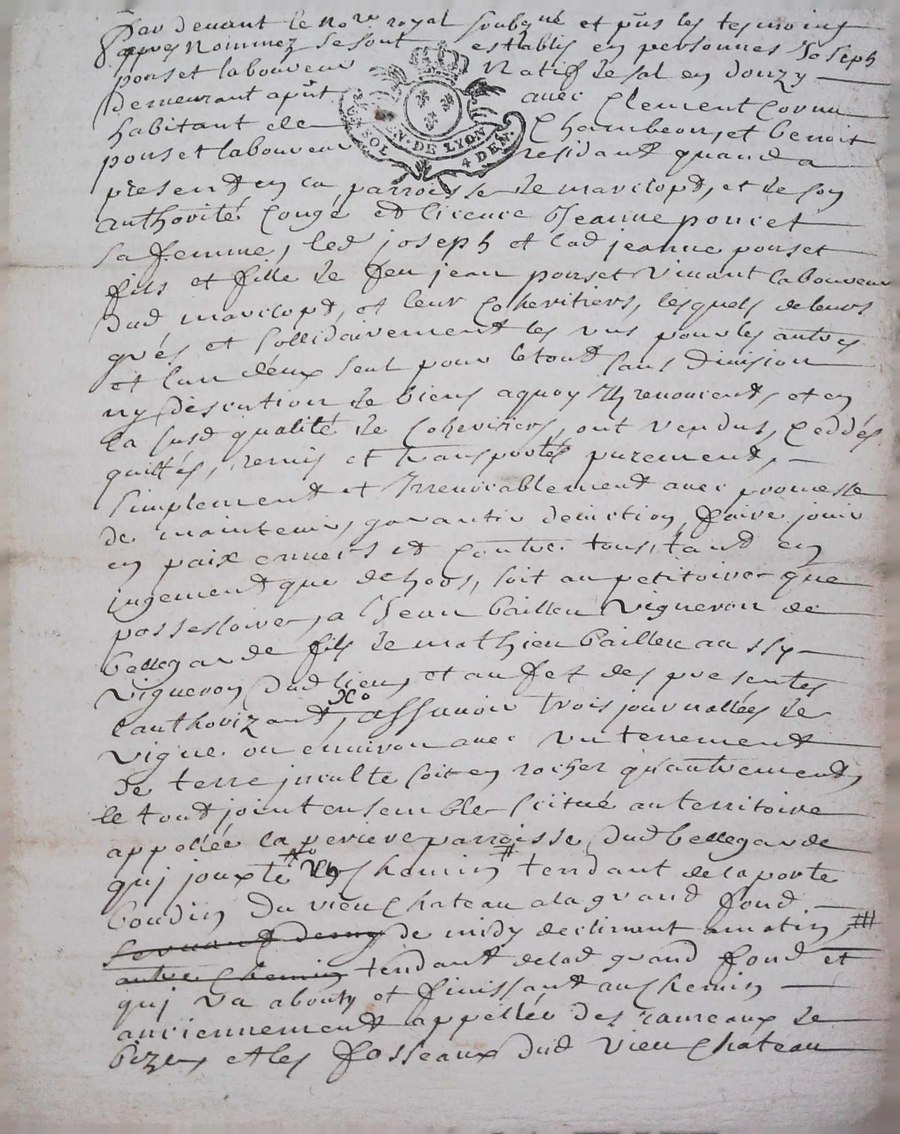 Par devant le no.re royal soubgné et pñs les tesmoins
apres nommez se sont establis en personnes Joseph
ponset laboureur natif de sal en donzy
demeurant apñt avec Clement Cornu
habitant de Chambeon, et benoit
ponset laboureur residant quand a
present en la parroisse de marclopt, et de son
authorité Congé et licence Jeanne poncet
sa femme, led joseph et lad jeanne ponset
fils et fille de feu jean ponset vivant laboureur
dud marclopt, et leur Coheritiers, lesquels de leurs
grés et sollidairement les uns pour les autres
et lun deux seul pour le tout sans division
ny discution de biens aquoy Ils renoncent, et en
la susd qualité de Coheritiers, ont vendus, Ceddés
quittés, remis et transportés purement,
simplement et Irrevocablement avec promesse
de maintenir, garantir deviction, faire jouir
en paix envers et Contre tous, tand en
jugement que dehors, soit au petitoire que
possessoire, a Jean bailleu vigneron de
bellegarde fils de mathieu bailleu aussy
vigneron dud lieu, et au fet des presentes
lauthorizant, assavoir trois journallées de
vigne ou environ avec un tenement
de terre juculte soit en rocher quautrement
le tout joint ensemble scitué au territoire
appellée la perriere parroisse dud bellegarde
qui jouxte un Chemin # tendant de la porte
boudin du vieu Chateau a la grand fond
de midy declinant a matin, #
autre Chemin tendant de lad grand fond et
qui va abouty et finissant au Chemin
anciennement appellée des
et les fosseaux dud vieu Chateau
GEN. DE LYON
SOL 4 DEN.